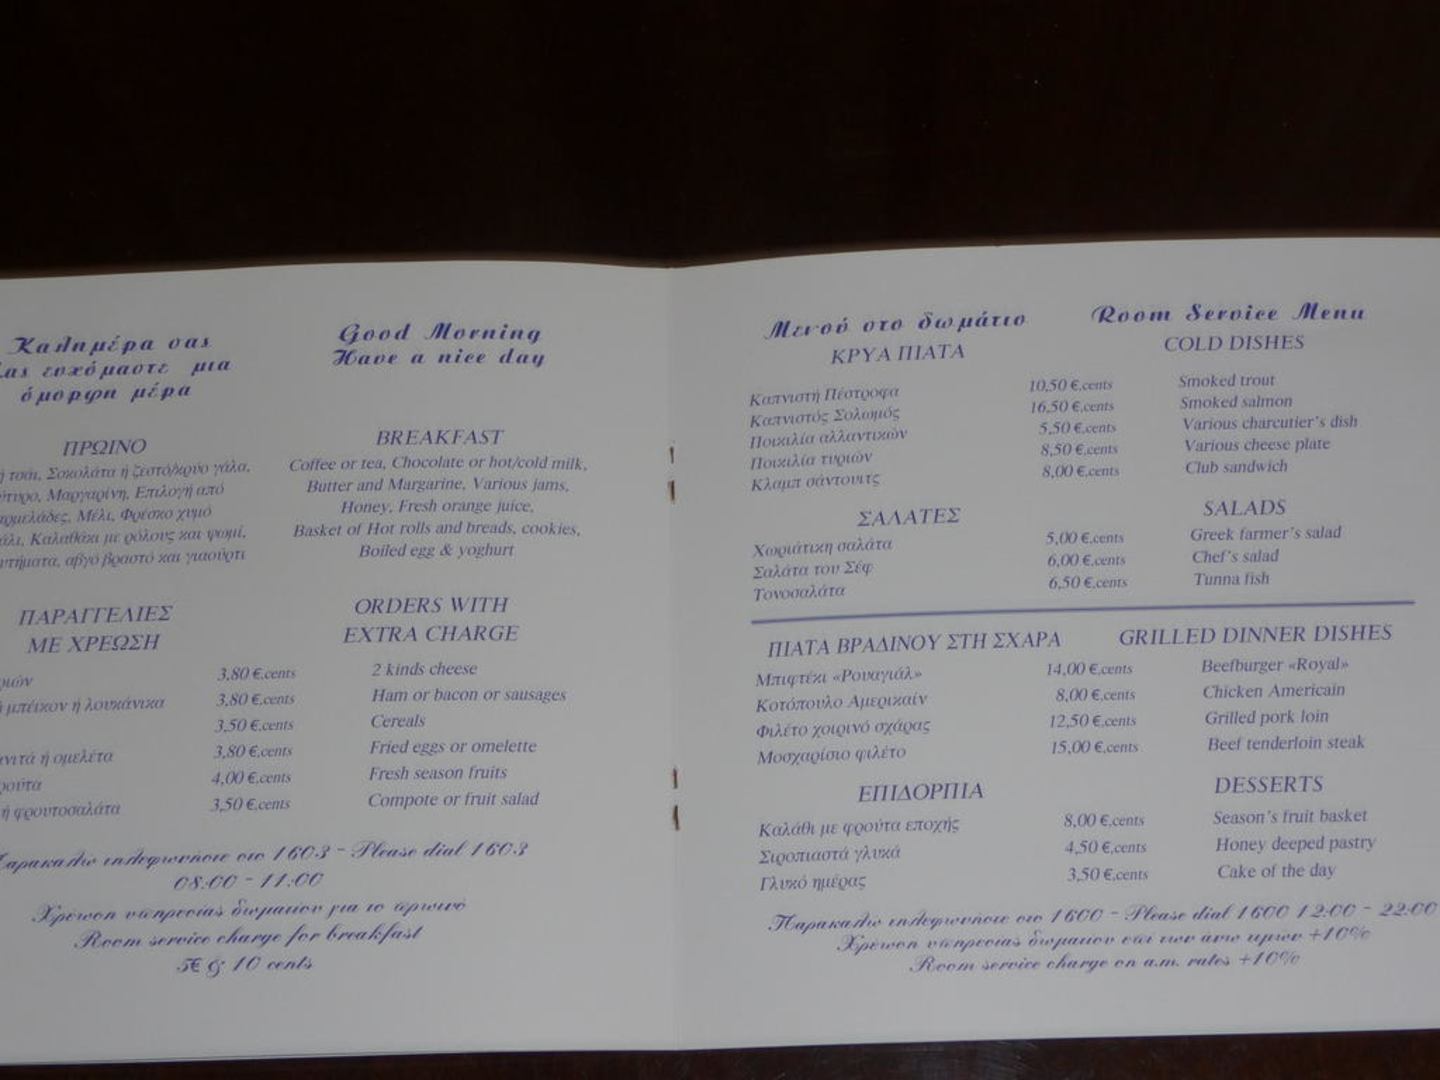 Καλημέρα σας
σας ευχόμαστε μια
όμορφη μέρα
Good Morning
Have a nice day
ΠΡΩΙΝΟ
ή τσάι, Σοκολάτα ή ζεστό/κρύο γάλα,
Μαργαρίνη, Επιλογή από
Μέλι, Φρέσκο χυμό
Καλαθάκι με ρόλους και ψωμί,
αβγό βραστό και γιαούρτι
BREAKFAST
Coffee or tea, Chocolate or hot/cold milk,
Butter and Margarine, Various jams,
Honey, Fresh orange juice,
Basket of Hot rolls and breads, cookies,
Boiled egg & yoghurt
ΠΑΡΑΓΓΕΛΙΕΣ
ΜΕ ΧΡΕΩΣΗ
ORDERS WITH
EXTRA CHARGE
3,80 €,cents 2 kinds cheese
μπέικον ή λουκάνικα 3,80 €,cents Ham or bacon or sausages
3,50 €,cents Cereals
ή ομελέτα 3,80 €,cents Fried eggs or omelette
4,00 €,cents Fresh season fruits
ή φρουτοσαλάτα 3,50 €,cents Compote or fruit salad
Παρακαλώ τηλεφωνήστε στο 1603 - Please dial 1603
08:00 - 11:00
Χρέωση υπηρεσίας δωματίου για το πρωινό
Room service charge for breakfast
5€ & 10 cents
Μενού στο δωμάτιο Room Service Menu
ΚΡΥΑ ΠΙΑΤΑ COLD DISHES
Καπνιστή Πέστροφα 10,50 €,cents Smoked trout
Καπνιστός Σολωμός 16,50 €,cents Smoked salmon
Ποικιλία αλλαντικών 5,50 €,cents Various charcutier's dish
Ποικιλία τυριών 8,50 €,cents Various cheese plate
Κλαμπ σάντουιτς 8,00 €,cents Club sandwich
ΣΑΛΑΤΕΣ SALADS
Χωριάτικη σαλάτα 5,00 €,cents Greek farmer's salad
Σαλάτα του Σέφ 6,00 €,cents Chef's salad
Τονοσαλάτα 6,50 €,cents Tunna fish
ΠΙΑΤΑ ΒΡΑΔΙΝΟΥ ΣΤΗ ΣΧΑΡΑ GRILLED DINNER DISHES
Μπιφτέκι «Ρουαγιάλ» 14,00 €,cents Beefburger «Royal»
Κοτόπουλο Αμερικαίν 8,00 €,cents Chicken Americain
Φιλέτο χοιρινό σχάρας 12,50 €,cents Grilled pork loin
Μοσχαρίσιο φιλέτο 15,00 €,cents Beef tenderloin steak
ΕΠΙΔΟΡΠΙΑ DESSERTS
Καλάθι με φρούτα εποχής 8,00 €,cents Season's fruit basket
Σιροπιαστά γλυκά 4,50 €,cents Honey deeped pastry
Γλυκό ημέρας 3,50 €,cents Cake of the day
Παρακαλώ τηλεφωνήστε στο 1600 - Please dial 1600 12:00 - 22:00
Χρέωση υπηρεσίας δωματίου επί των άνω τιμών +10%
Room service charge on a.m. rates +10%